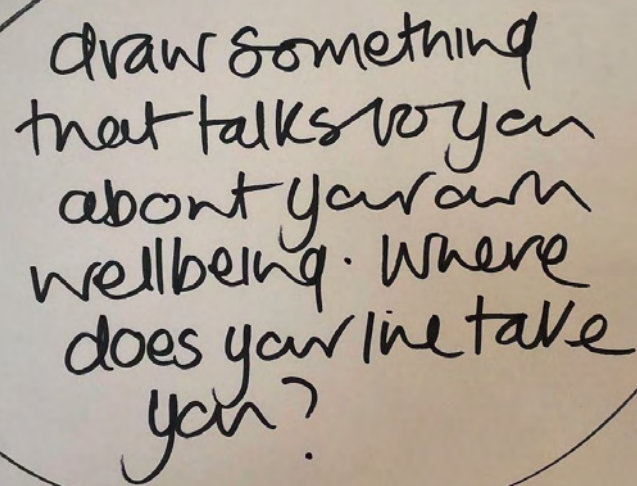 draw something
that talks to you
about your own
wellbeing. Where
does your line take
you?